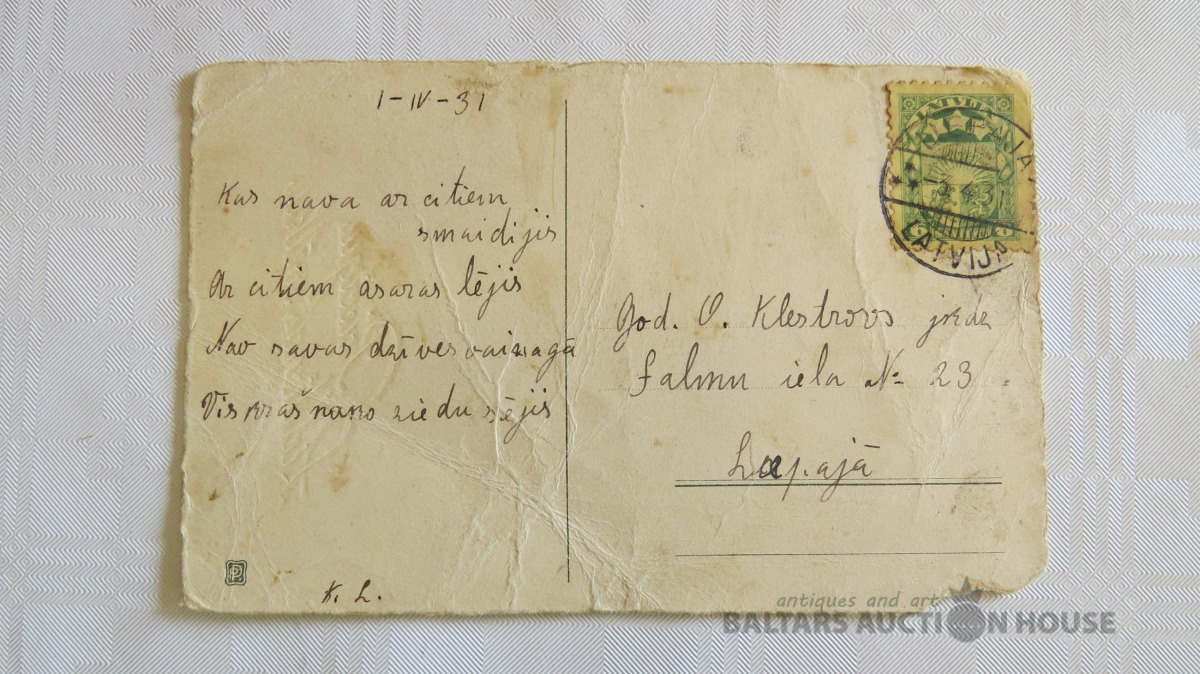 1-IV-31
Kas nava ar citiem
smaidijis
Ar citiem asaras lējis
Nav savas dzīves vainagā
Viskrašnako ziedu sējis
K. L.
God. O. Klestrovs jkdz
iela № 23
LATVIJA
LIEPAJA
LATVIJA
antiques and art
BALTARS AUCTION HOUSE